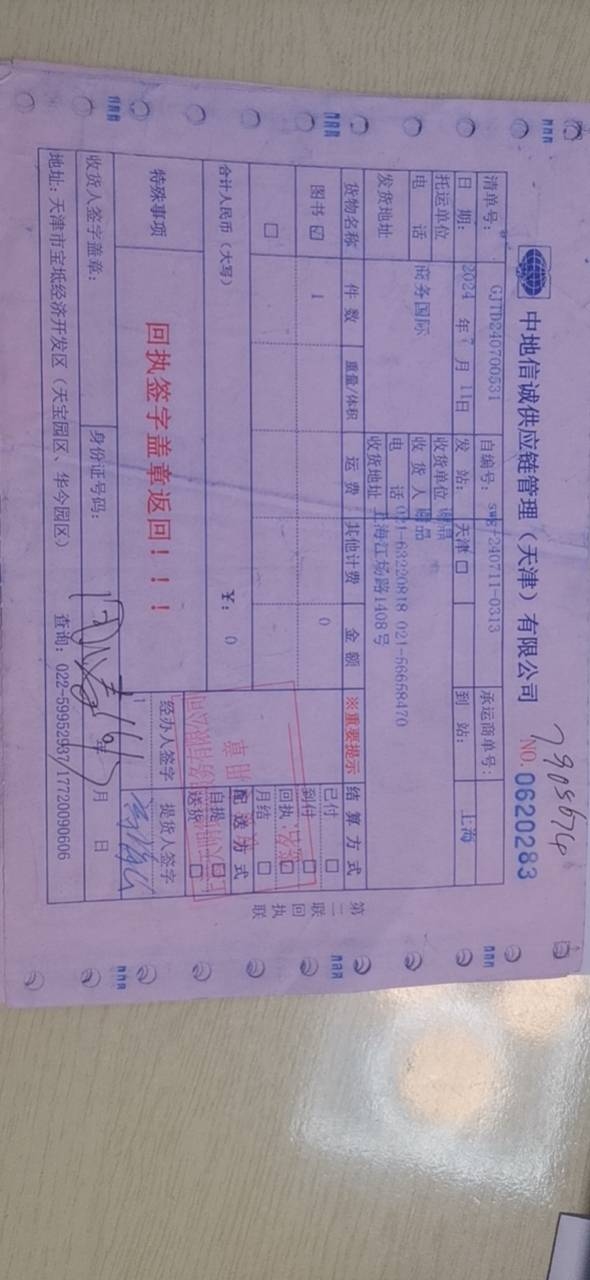 中地信诚供应链管理（天津）有限公司
NO. 0620283
清单号： GJTD240700531 自编号： swgj-240711-0313 承运商单号：
日 期： 2024 年 7 月 11日 发 站： 天津 □ 到 站： 上海
托运单位 商务国际 收货单位
电 话 收 货 人
发货地址 电 话 021-63220818 021-56658470
收货地址 上海江场路1408号
货物名称 件 数 重量/体积 运 费 其他计费 金 额 ※重要提示 结 算 方 式
图书 ☑ 1 0
□
已付 □
到付 □
回执 □
月结 □
合计人民币（大写） ￥： 0
配 送 方 式
自提 □
送货 □
特殊事项 回执签字盖章返回！！！ 经办人签字 提货人签字
收货人签字盖章： 身份证号码： 年 月 日
地址：天津市宝坻经济开发区（天宝园区、华今园区） 查询：022-59952937/17720090606
第二联 回执联